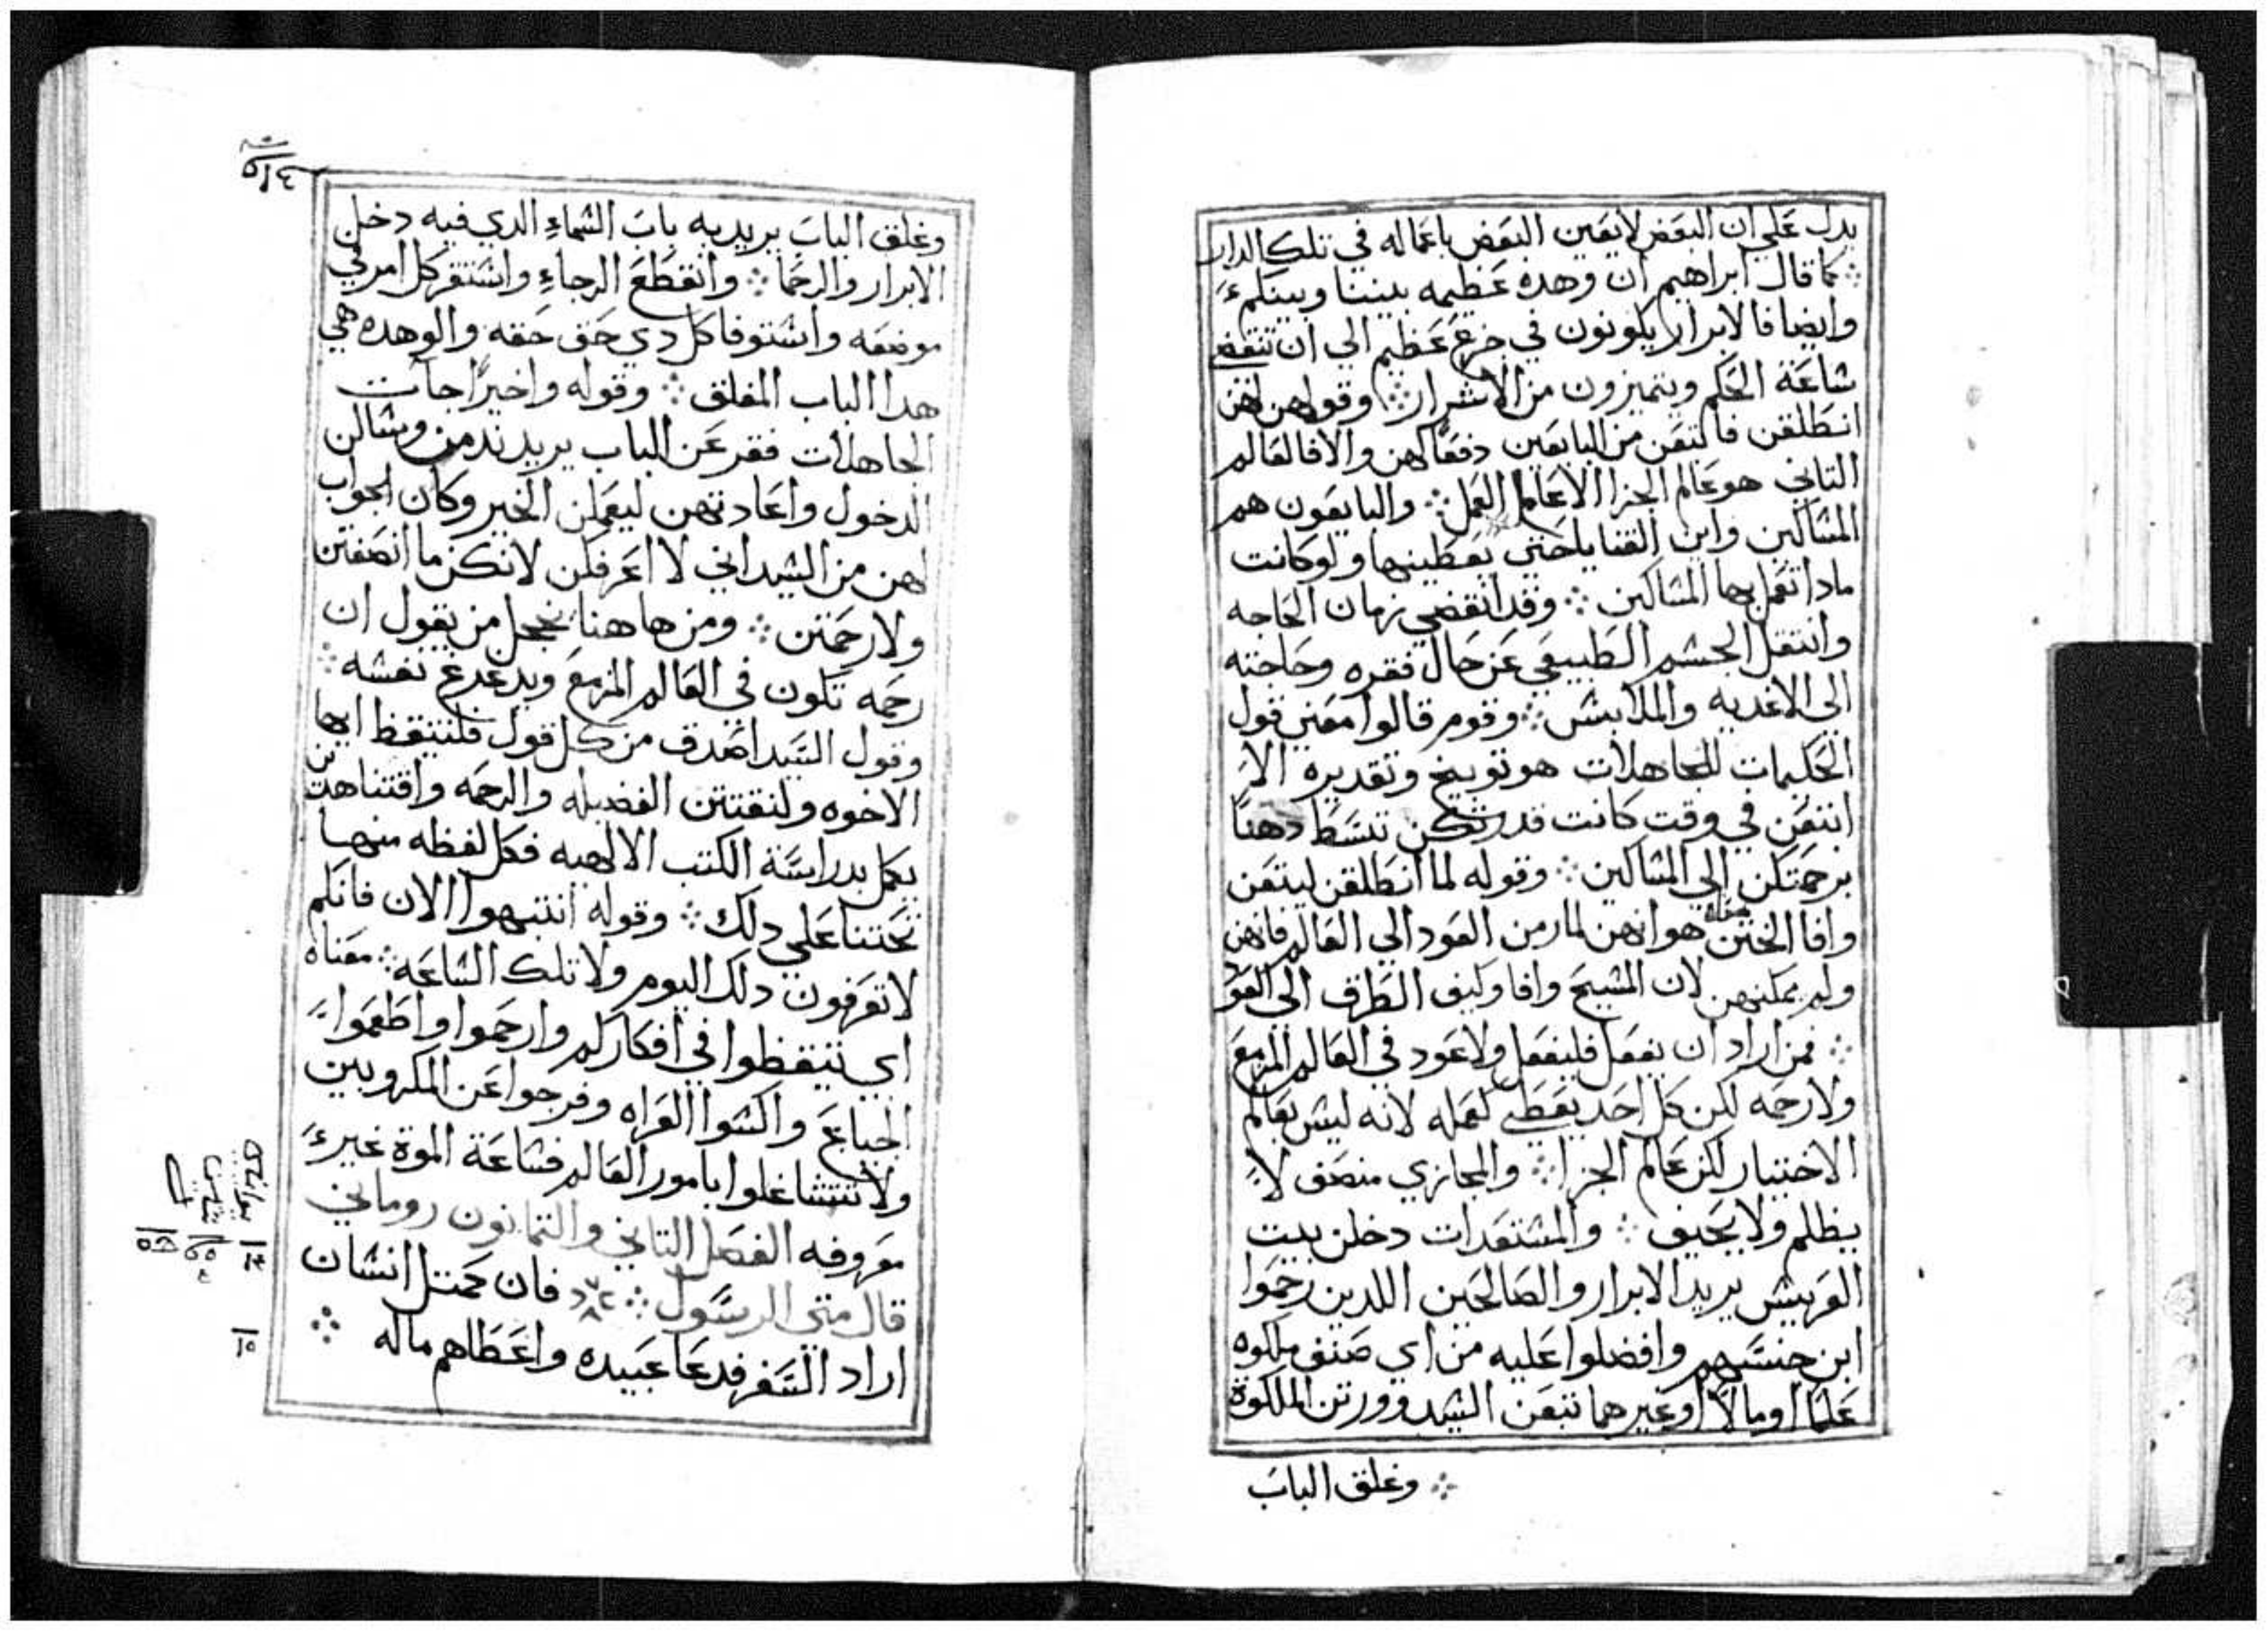 يدل علي ان البعض لا يعين البعض باعماله في تلك الدار
كما قال ابراهيم ان وهده عظيمه بيننا وبينكم
وايضا فالابرار يكونون في جزع عظيم الي ان تنقضي
ساعة الحكم ويتميزون من الاشرار وقولهن لهن
انطلقن فابتعن من البايعين دفعا لهن والا فالعالم
التاني هو عالم الجزا لا عالم العمل والبايعون هم
المساكين واين القنايا حتي يعطينها ولو كانت
مادا تعمل بها المساكين وقد انقضي زمان الحاجه
وانتقل الجسم الطبيعي عن حال فقره وحاجته
الي الاغديه والملابس وقوم قالوا معني قول
الحكيمات للجاهلات هو توبيخ وتقديره الا
ابتعن في وقت كانت قدرتكن تنسط دهنا
برحمتكن الي المساكين وقوله لما انطلقن ليبتعن
وافا الختن معناه هو انهن لما رمن العود الي العالم فاتهن
ولم يمكنهن لان المسيح وافا وكيف الطرق الي العود
فمن اراد ان يفعل فليفعل ولا عود في العالم المزمع
ولا رحمه لكن كل احد يعطي كعمله لانه ليس بعالم
الاختيار لكن عالم الجزا والمجازي منصف لا
يظلم ولا يحيف والمستعدات دخلن بيت
العريس يريد الابرار والصالحين اللدين رحموا
ابن جنسهم وافضلوا عليه من اي صنف ملكوه
علما او مالا او غيرهما تبعن السيد وورتن الملكوة
وغلق الباب
٥١٤
وغلق الباب يريد به باب السماء الدي فيه دخل
الابرار والرحما وانقطع الرجاء واستقر كل امر في
موضعه واستوفا كل دي حق حقه والوهده هي
هدا الباب المغلق وقوله واخيرا جآت
الجاهلات فقرعن الباب يريد ندمن وسالن
الدخول واعادتهن ليعملن الخير وكان الجواب
لهن من السيد اني لا اعرفكن لانكن ما انصفتن
ولا رحمتن ومن هاهنا يخجل من يقول ان
رحمه تكون في العالم المزمع ويدغدغ نفسه
وقول السيد اصدق من كل قول فلنتيقظ ايها
الاخوه ولنقتني الفضيله والرحمه واقتنا هتين
يكمل بدراسة الكتب الالهيه فكل لفظه منها
تحتنا علي دلك وقوله انتبهوا الان فانكم
لا تعرفون دلك اليوم ولا تلك الساعه معناه
اي تتيقظوا في افكاركم وارحموا واطعموا
الجياع واكسوا العراه وفرجوا عن المكروبين
ولا تتشاغلوا بامور العالم فساعة الموة غير
معروفه الفصل التاني والتمانون روماني
قال متي الرسول فان كمتل انسان
اراد السفر فدعا عبيده واعطاهم ماله